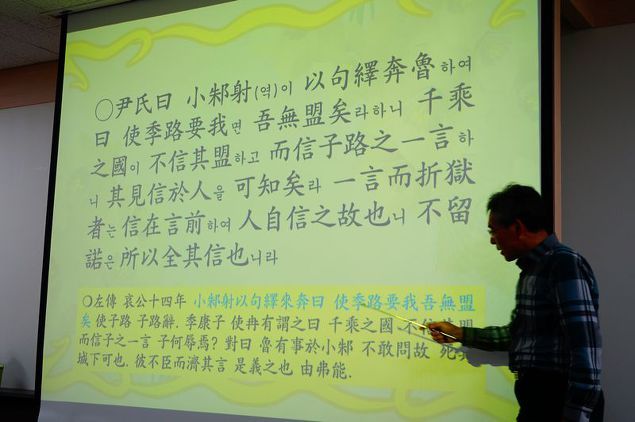 ○尹氏曰 小邾射(역)이 以句繹奔魯하여
曰 使季路要我면 吾無盟矣라하니 千乘
之國이 不信其盟하고 而信子路之一言하
니 其見信於人을 可知矣라 一言而折獄
者는 信在言前하여 人自信之故也니 不留
諾은 所以全其信也니라
○左傳 哀公十四年 小邾射以句繹來奔曰 使季路要我吾無盟
矣 使子路 子路辭. 季康子 使冉有謂之曰 千乘之國 不信其盟
而信子之一言 子何辱焉? 對曰 魯有事於小邾 不敢問故 死其
城下可也. 彼不臣而濟其言 是義之也 由弗能.